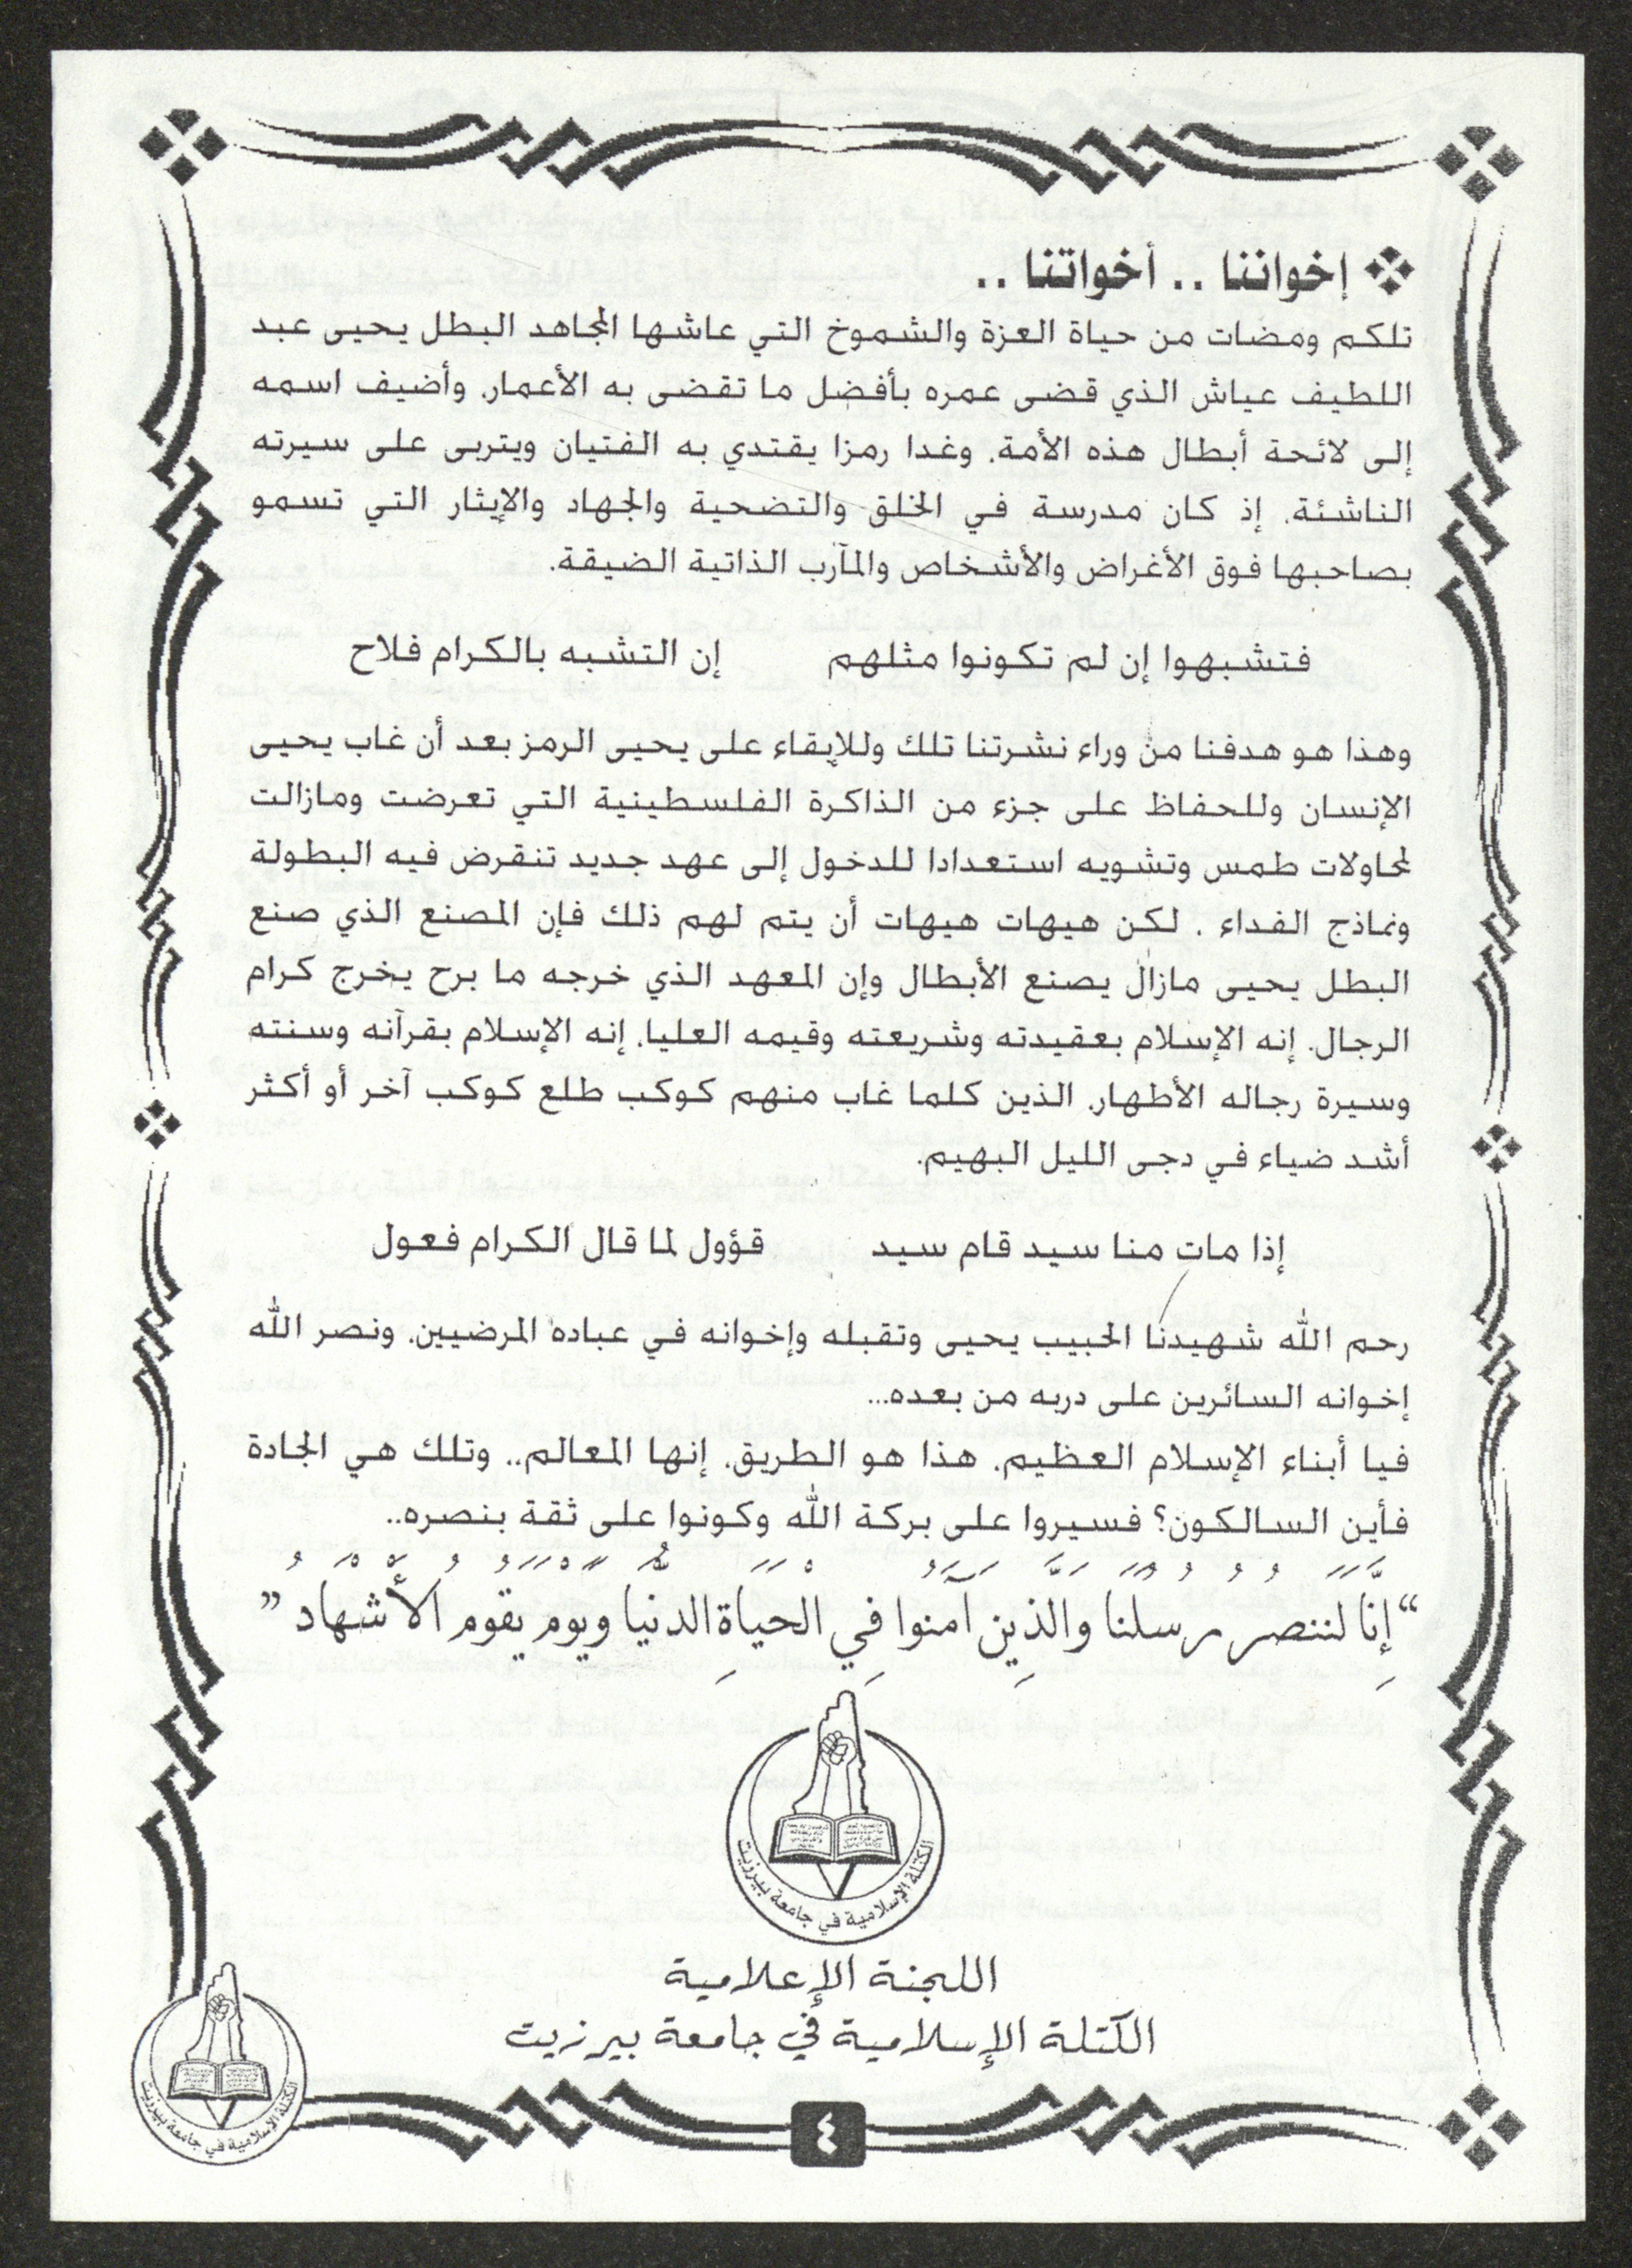 إخواننا .. أخواتنا ..
تلكم ومضات من حياة العزة والشموخ التي عاشها المجاهد البطل يحيى عبد
اللطيف عياش الذي قضى عمره بأفضل ما تقضى به الأعمار، وأضيف اسمه
إلى لائحة أبطال هذه الأمة، وغدا رمزا يقتدي به الفتيان ويتربى على سيرته
الناشئة، إذ كان مدرسة في الخلق والتضحية والجهاد والإيثار التي تسمو
بصاحبها فوق الأغراض والأشخاص والمآرب الذاتية الضيقة.
فتشبهوا إن لم تكونوا مثلهم إن التشبه بالكرام فلاح
وهذا هو هدفنا من وراء نشرتنا تلك وللإبقاء على يحيى الرمز بعد أن غاب يحيى
الإنسان وللحفاظ على جزء من الذاكرة الفلسطينية التي تعرضت ومازالت
لمحاولات طمس وتشويه استعدادا للدخول إلى عهد جديد تنقرض فيه البطولة
ونماذج الفداء . لكن هيهات هيهات أن يتم لهم ذلك فإن المصنع الذي صنع
البطل يحيى مازال يصنع الأبطال وإن المعهد الذي خرجه ما برح يخرج كرام
الرجال. إنه الإسلام بعقيدته وشريعته وقيمه العليا، إنه الإسلام بقرآنه وسنته
وسيرة رجاله الأطهار، الذين كلما غاب منهم كوكب طلع كوكب آخر أو أكثر
أشد ضياء في دجى الليل البهيم.
إذا مات منا سيد قام سيد قؤول لما قال الكرام فعول
رحم الله شهيدنا الحبيب يحيى وتقبله وإخوانه في عباده المرضيين، ونصر الله
إخوانه السائرين على دربه من بعده...
فيا أبناء الإسلام العظيم، هذا هو الطريق، إنها المعالم.. وتلك هي الجادة
فأين السالكون؟ فسيروا على بركة الله وكونوا على ثقة بنصره..
“إِنَّا لَنَنصُرُ رُسُلَنَا وَالَّذِينَ آمَنُوا فِي الْحَيَاةِ الدُّنْيَا وَيَوْمَ يَقُومُ الْأَشْهَادُ”
الكتلة الإسلامية في جامعة بيرزيت
اللجنة الإعلامية
الكتلة الإسلامية في جامعة بيرزيت
الكتلة الإسلامية في جامعة بيرزيت
٤